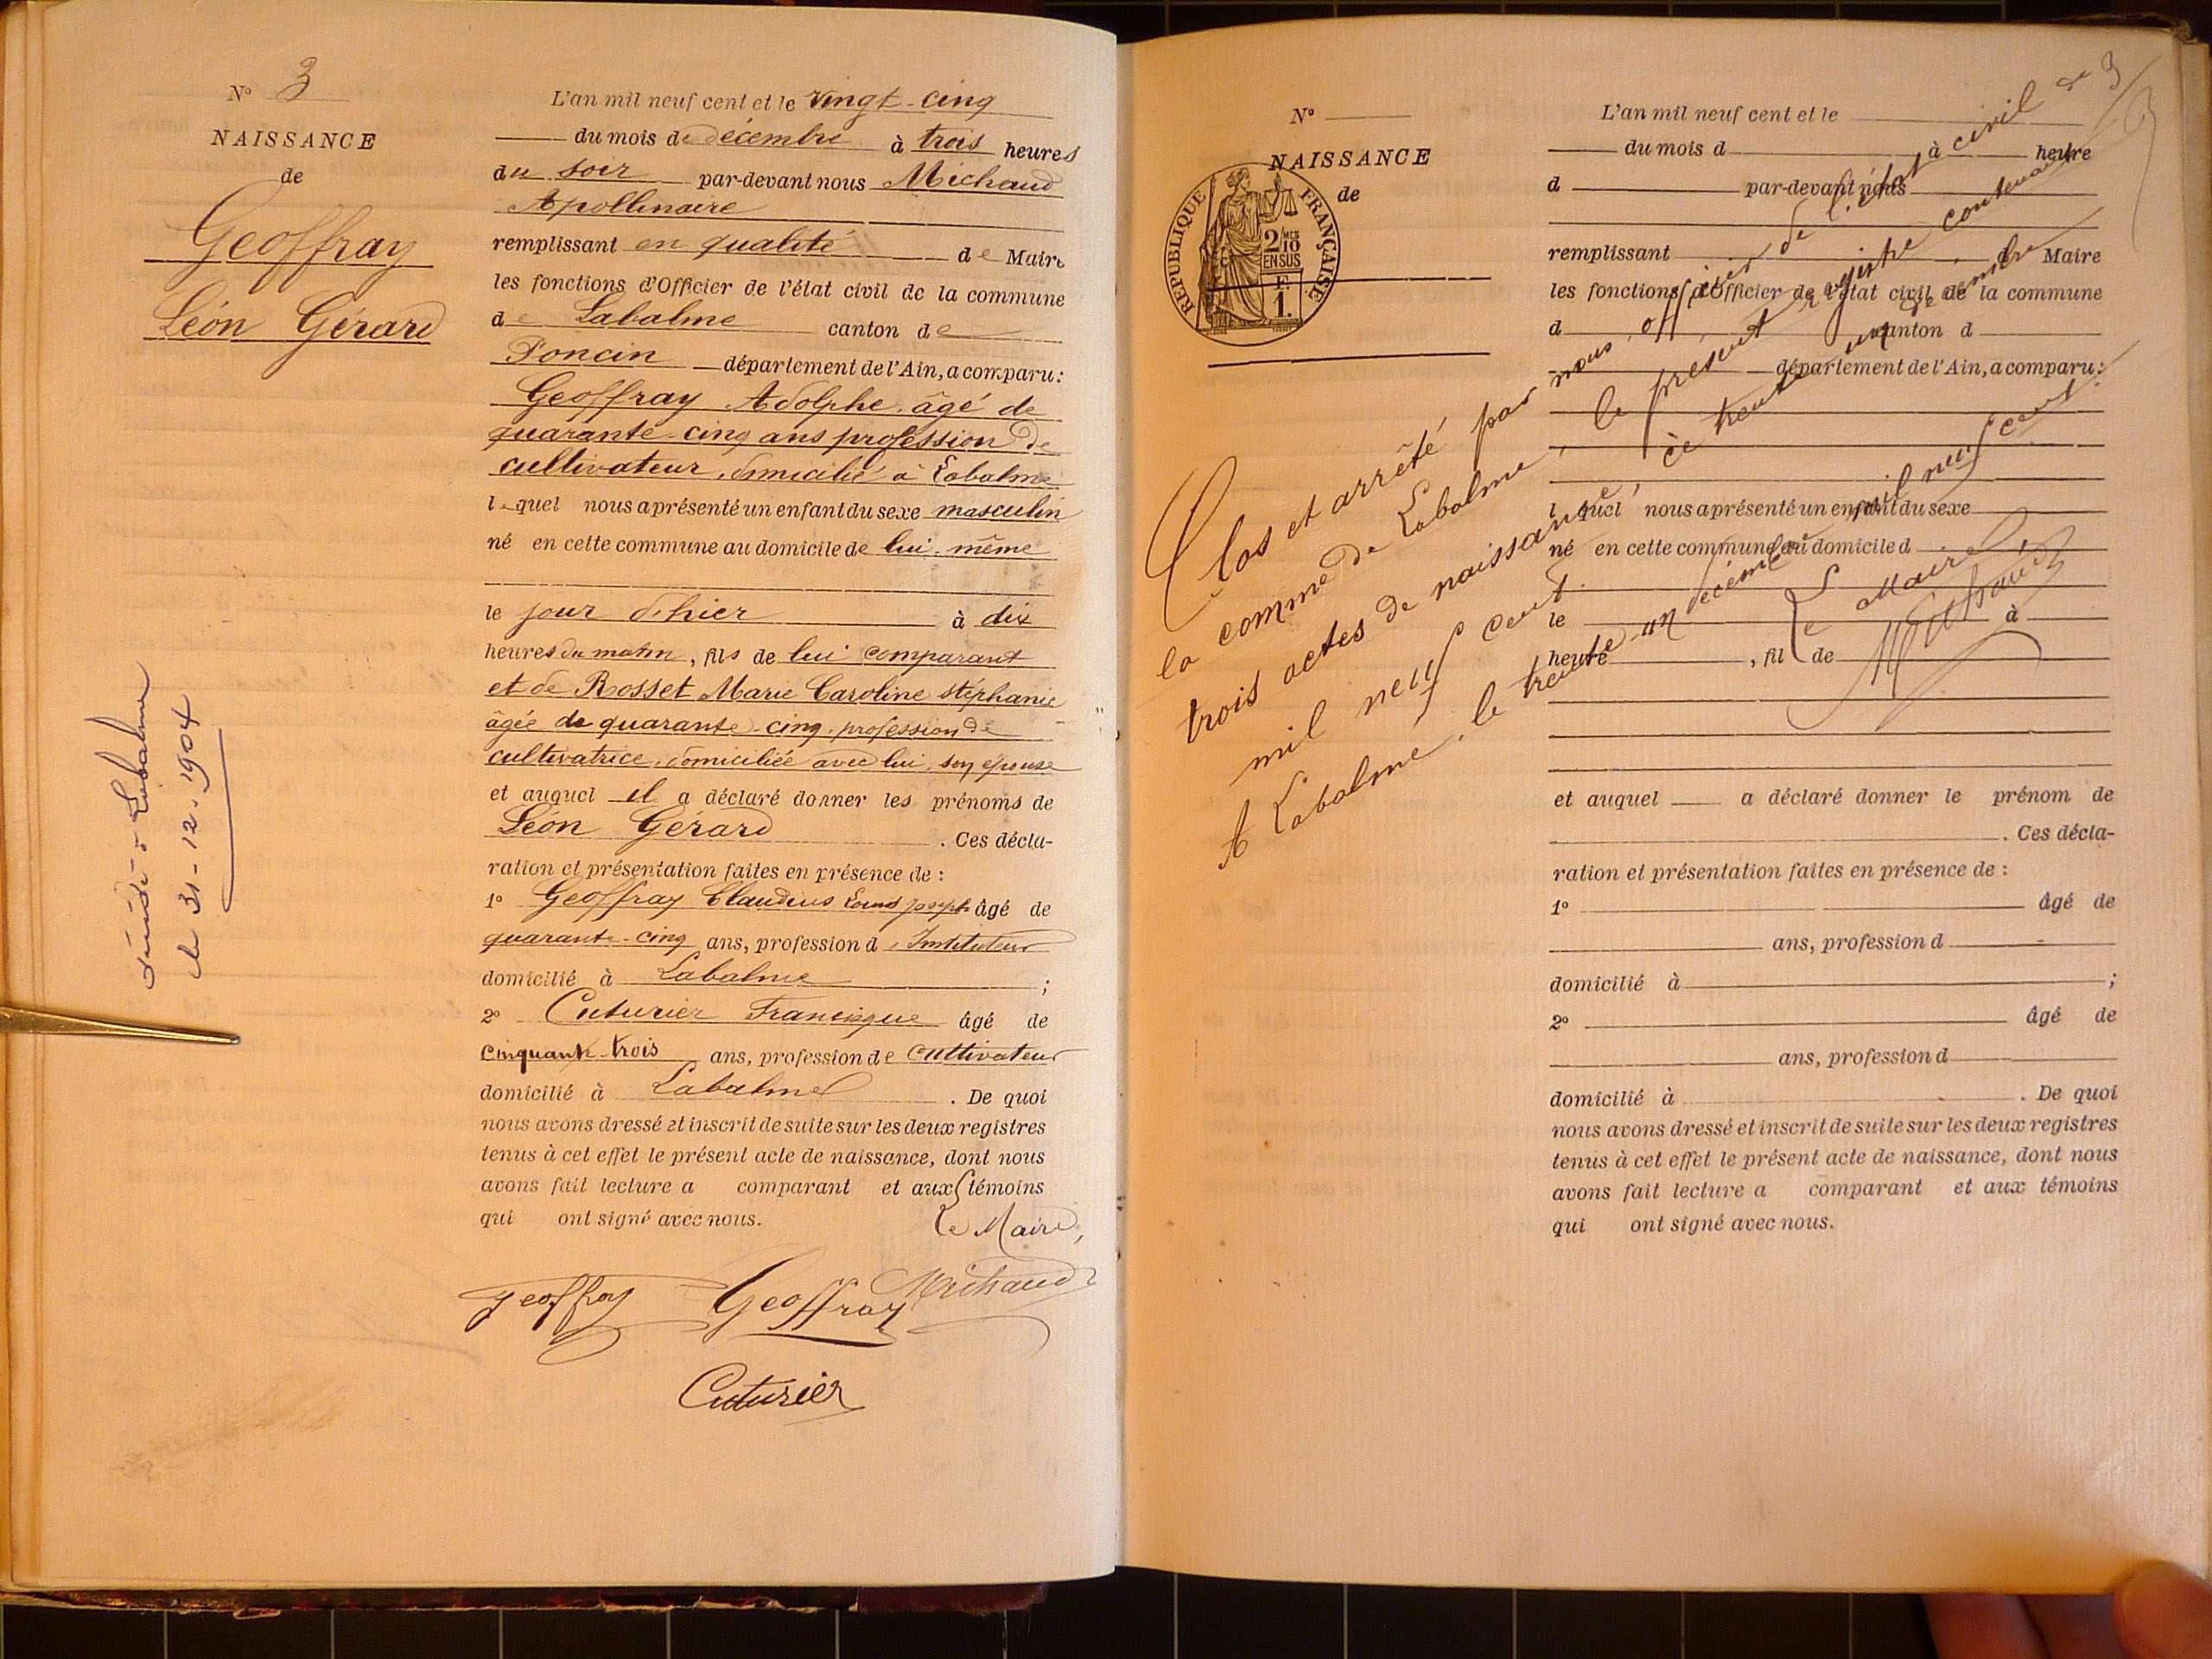 N° 3
NAISSANCE
de
Geoffray
Léon Gérard
L'an mil neuf cent et le vingt-cinq
du mois de décembre à trois heures
du soir par-devant nous Michaud
Apollinaire
remplissant en qualité de Maire
les fonctions d'Officier de l'état civil de la commune
de Labalme canton de
Poncin département de l'Ain, a comparu :
Geoffray Adolphe, âgé de
quarante-cinq ans profession de
cultivateur, domicilié à Labalme
lequel nous a présenté un enfant du sexe masculin
né en cette commune au domicile de lui-même
le jour d'hier à dix
heures du matin, fils de lui comparant
et de Rosset Marie Caroline stéphanie
âgée de quarante-cinq, profession de
cultivatrice, domiciliée avec lui, son épouse
et auquel il a déclaré donner les prénoms de
Léon Gérard . Ces décla-
ration et présentation faites en présence de :
1° Geoffray Claudius Louis joseph âgé de
quarante-cinq ans, profession d'Instituteur
domicilié à Labalme ;
2° Cuturier Francisque âgé de
cinquante-trois ans, profession de cultivateur
domicilié à Labalme . De quoi
nous avons dressé et inscrit de suite sur les deux registres
tenus à cet effet le présent acte de naissance, dont nous
avons fait lecture a comparant et aux témoins
qui ont signé avec nous.
Le Maire,
Geoffray Geoffray Michaud
Cuturier
à Labalme
le 31-12-1904
N°
NAISSANCE
de
REPUBLIQUE FRANÇAISE
2/10
EN SUS
F.
1.
L'an mil neuf cent et le
du mois d à heure
d par-devant nous
remplissant d Maire
les fonctions d'Officier de l'état civil de la commune
d canton d
département de l'Ain, a comparu :
l quel nous a présenté un enfant du sexe
né en cette commune au domicile d
le à
heure , fil de
et auquel a déclaré donner le prénom de
. Ces décla-
ration et présentation faites en présence de :
1° âgé de
ans, profession d
domicilié à ;
2° âgé de
ans, profession d
domicilié à . De quoi
nous avons dressé et inscrit de suite sur les deux registres
tenus à cet effet le présent acte de naissance, dont nous
avons fait lecture a comparant et aux témoins
qui ont signé avec nous.
Clos et arrêté par nous, officier de l'état civil de
la comme de Labalme, le présent registre contenant
trois actes de naissance, ce trente un décembre
mil neuf cent.
A Labalme, le trente-un décembre mil neuf cent.
Le Maire,
Michaud
3